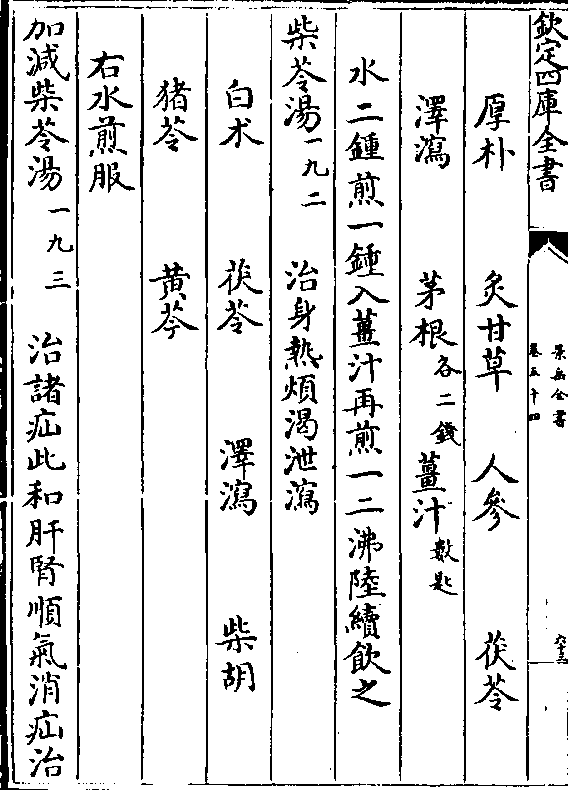 欽定四庫全書
景岳全書
卷五十四
六十三
厚朴 炙甘草 人參 茯苓
澤瀉 茅根各二錢 薑汁數匙
水二鍾煎一鍾入薑汁再煎一二沸陸續飲之
柴苓湯一九二 治身熱煩渴泄瀉
白术 茯苓 澤瀉 柴胡
猪苓 黄芩
右水煎服
加減柴苓湯一九三 治諸疝此和肝腎順氣消疝治